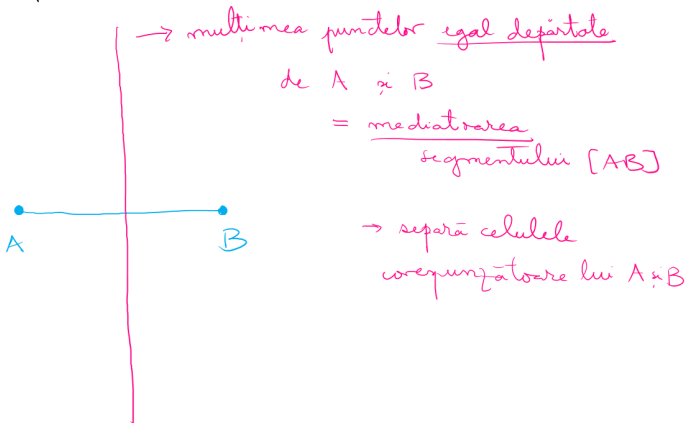 → mulțimea punctelor egal depărtate
de A și B
= mediatoarea
segmentului [AB]
A
B
→ separă celulele
corespunzătoare lui A și B